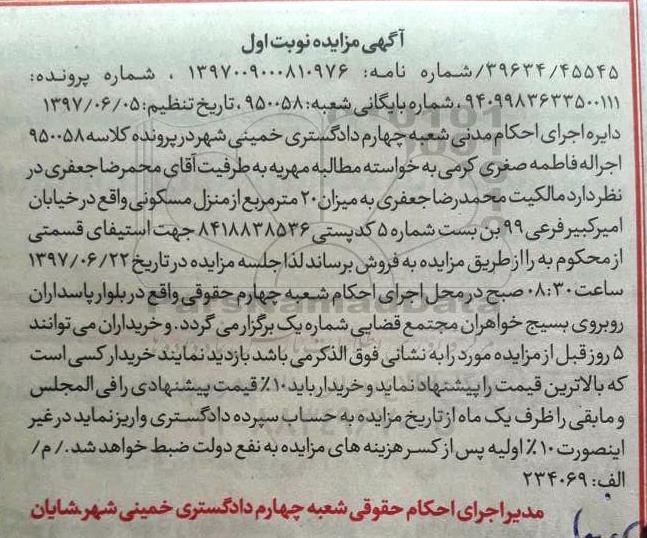 آگهی مزایده نوبت اول
۳۹۶۳۴/۴۵۵۴۵/شماره نامه: ۱۳۹۷۰۰۹۰۰۰۸۱۰۹۷۶ ، شماره پرونده:
۹۴۰۹۹۸۳۶۳۳۵۰۰۱۱۱، شماره بایگانی شعبه: ۹۵۰۰۵۸ ، تاریخ تنظیم: ۱۳۹۷/۰۶/۰۵
دایره اجرای احکام مدنی شعبه چهارم دادگستری خمینی شهر در پرونده کلاسه ۹۵۰۰۵۸
اجراله فاطمه صغری کرمی به خواسته مطالبه مهریه به طرفیت آقای محمرضا جعفری در
نظر دارد مالکیت محمدرضا جعفری به میزان ۲۰ مترمربع از منزل مسکونی واقع در خیابان
امیرکبیر فرعی ۹۹ بن بست شماره ۵ کدپستی ۸۴۱۸۸۳۸۵۳۶ جهت استیفای قسمتی
از محکوم به را از طریق مزایده به فروش برساند لذا جلسه مزایده در تاریخ ۱۳۹۷/۰۶/۲۲
ساعت ۰۸:۳۰ صبح در محل اجرای احکام شعبه چهارم حقوقی واقع در بلوار پاسداران
روبروی بسیج خواهران مجتمع قضایی شماره یک برگزار می گردد. و خریداران می توانند
۵ روز قبل از مزایده مورد را به نشانی فوق الذکر می باشد بازدید نمایند خریدار کسی است
که بالاترین قیمت را پیشنهاد نماید و خریدار باید ۱۰٪ قیمت پیشنهادی را فی المجلس
و مابقی را ظرف یک ماه از تاریخ مزایده به حساب سپرده دادگستری واریز نماید در غیر
اینصورت ۱۰٪ اولیه پس از کسر هزینه های مزایده به نفع دولت ضبط خواهد شد./ م/
الف: ۲۳۴۰۶۹
مدیر اجرای احکام حقوقی شعبه چهارم دادگستری خمینی شهر.شایان